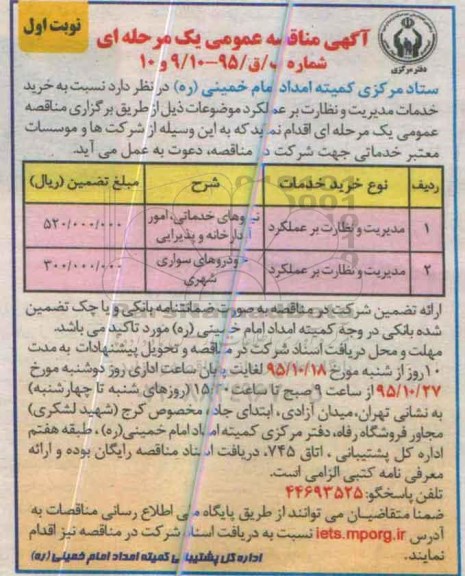 نوبت اول
آگهی مناقصه عمومی یک مرحله ای
شماره ب/ق/۹۵-۹/۱۰ و ۱۰
دفتر مرکزی
ستاد مرکزی کمیته امداد امام خمینی (ره) در نظر دارد نسبت به خرید
خدمات مدیریت و نظارت بر عملکرد موضوعات ذیل از طریق برگزاری مناقصه
عمومی یک مرحله ای اقدام نماید که به این وسیله از شرکت ها و موسسات
معتبر خدماتی جهت شرکت در مناقصه، دعوت به عمل می آید.
ردیف نوع خرید خدمات شرح مبلغ تضمین (ریال)
۱ مدیریت و نظارت بر عملکرد نیروهای خدماتی، امور آبدارخانه و پذیرایی ۵۲۰/۰۰۰/۰۰۰
۲ مدیریت و نظارت بر عملکرد خودروهای سواری شهری ۳۰۰/۰۰۰/۰۰۰
ارائه تضمین شرکت در مناقصه به صورت ضمانتنامه بانکی و یا چک تضمین
شده بانکی در وجه کمیته امداد امام خمینی (ره) مورد تاکید می باشد.
مهلت و محل دریافت اسناد شرکت در مناقصه و تحویل پیشنهادات به مدت
۱۰ روز از شنبه مورخ ۹۵/۱۰/۱۸ لغایت پایان ساعت اداری روز دوشنبه مورخ
۹۵/۱۰/۲۷ از ساعت ۹ صبح تا ساعت ۱۵/۳۰ (روزهای شنبه تا چهارشنبه)
به نشانی تهران، میدان آزادی، ابتدای جاده مخصوص کرج (شهید لشکری)
مجاور فروشگاه رفاه، دفتر مرکزی کمیته امداد امام خمینی(ره)، طبقه هفتم
اداره کل پشتیبانی ، اتاق ۷۴۵، دریافت اسناد مناقصه رایگان بوده و ارائه
معرفی نامه کتبی الزامی است.
تلفن پاسخگو: ۴۴۶۹۳۵۲۵
ضمنا متقاضیان می توانند از طریق پایگاه ملی اطلاع رسانی مناقصات به
آدرس iets.mporg.ir نسبت به دریافت اسناد شرکت در مناقصه نیز اقدام
نمایند.
اداره کل پشتیبانی کمیته امداد امام خمینی (ره)